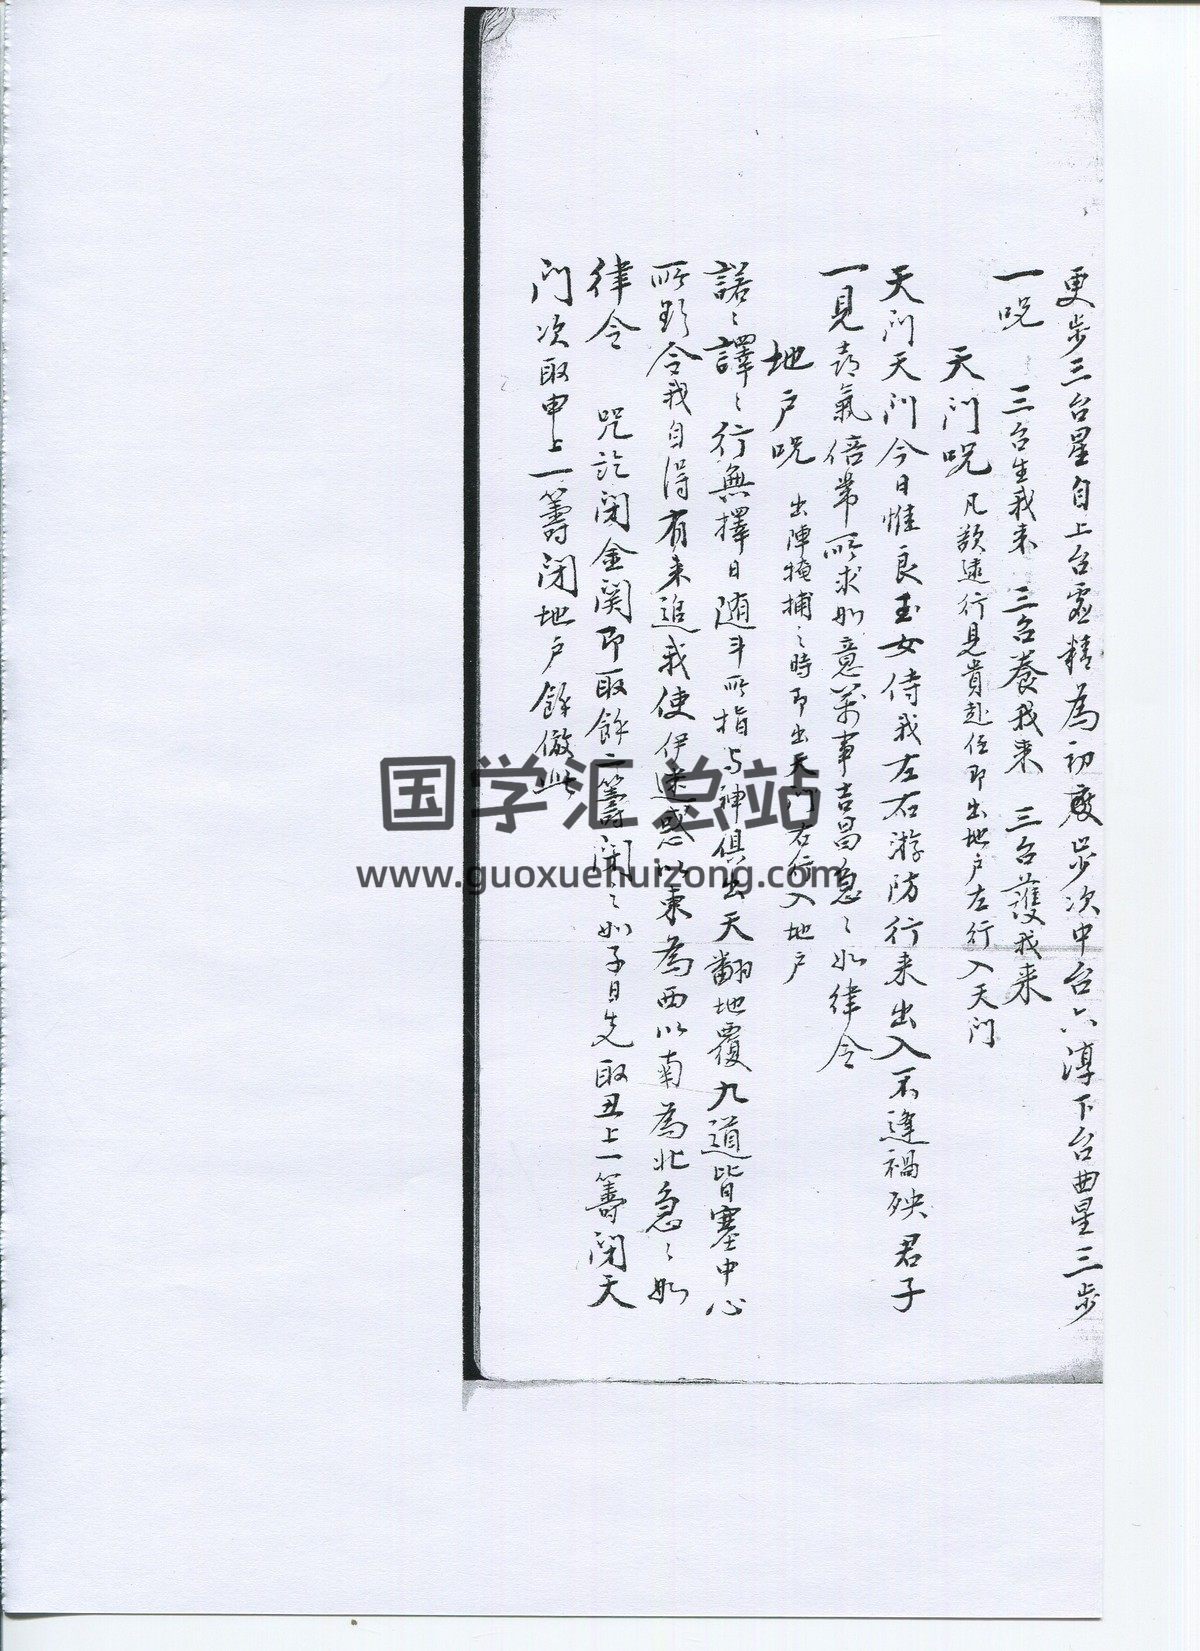 更步三台星自上台虚精為初發步次中台六淳下台曲星三步
一呪　三台生我来　三台養我来　三台護我来
天门呪　凡欲遠行見貴赴任即出地户左行入天门
天门天门今日惟良玉女侍我左右游防行来出入不逢禍殃君子
一見喜氣倍常所求如意萬事吉昌急〻如律令
地户呪　出陣掩捕之時即出天门右行入地户
諾〻譯〻行無擇日随斗所指与神俱出天翻地覆九道皆塞中心
所 令我自得有来追我使伊迷惑以東為西以南為北急〻如
律令　咒訖闭金関即取餘二籌闭之如子日先取丑上一籌闭天
门次取申上一籌闭地户餘倣此
国学汇总站
www.guoxuehuizong.com